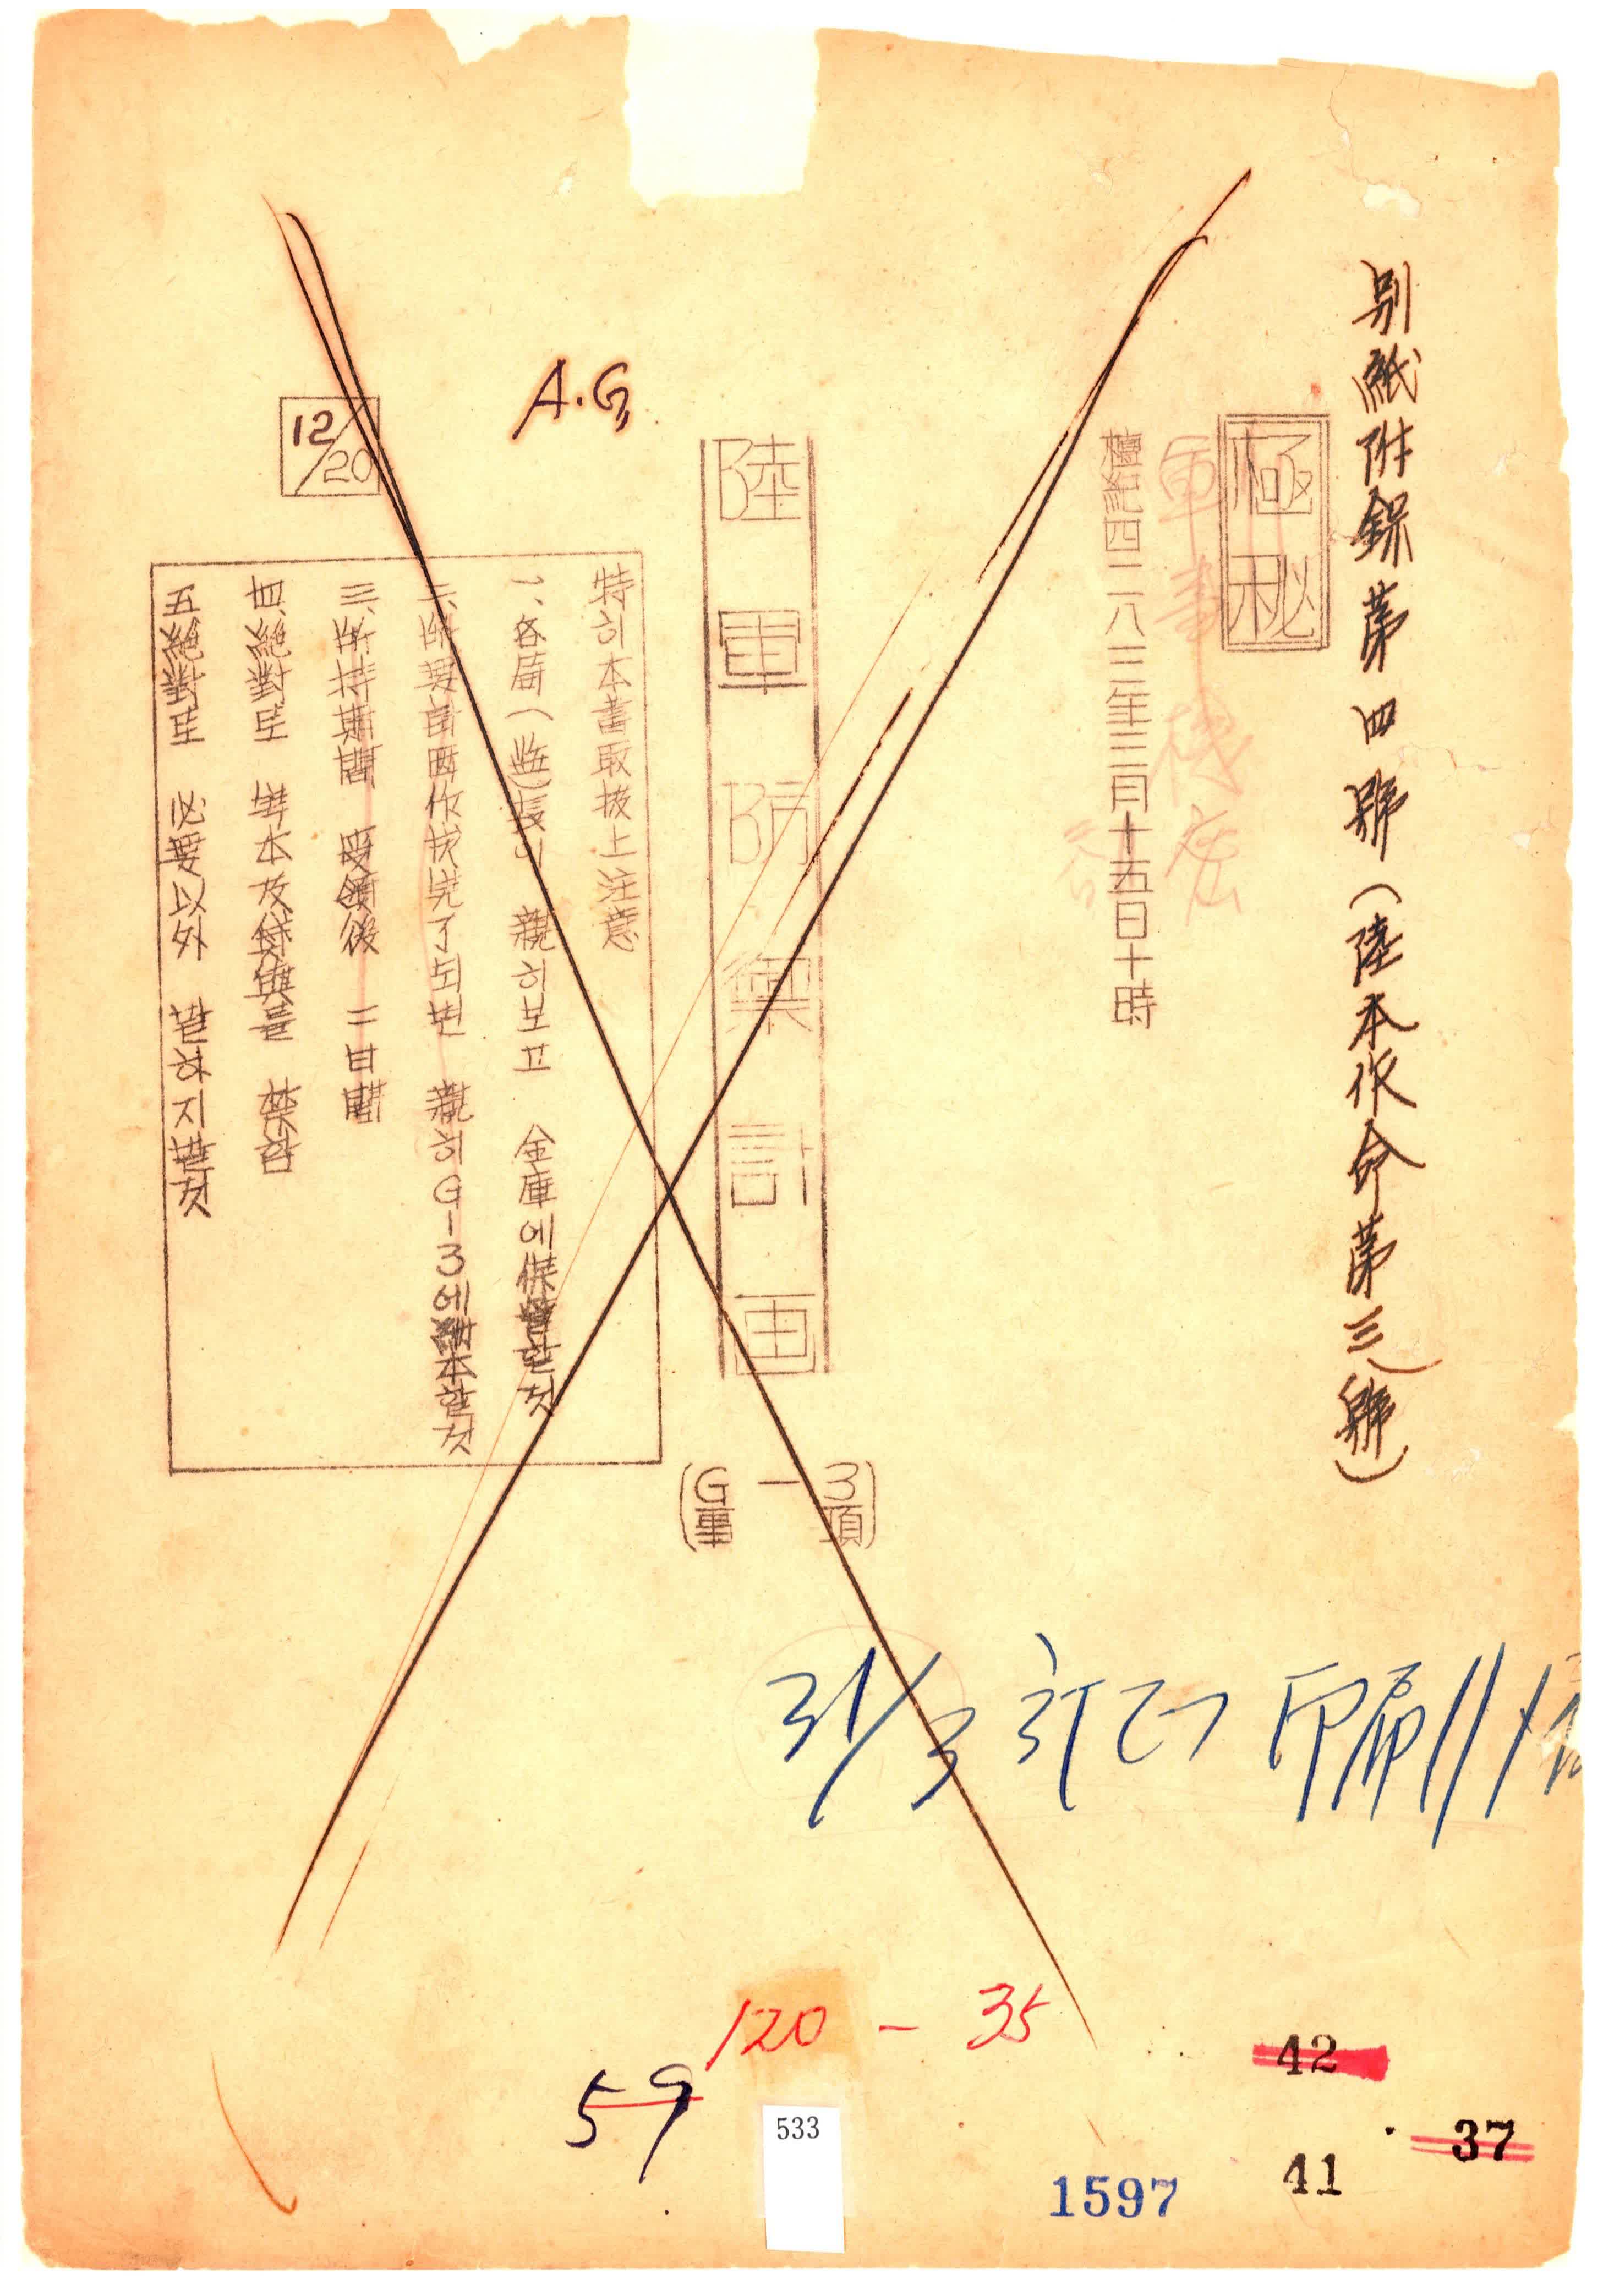 別紙附錄第四號(陸本作命第三號)
極秘
軍事機密
檀紀四二八三年三月十五日十時
陸軍防禦計画
(G-3事項)
A.G
12/20
特히本書取扱上注意
一、各局(監)長이 親히보고 金庫에保管할것
二、所要計画作成完了되면 親히G-3에納本할것
三、所持期間 受領後 二日間
四、絕對로 謄本及貸與를 禁함
五、絕對로 必要以外 말하지말것
31/3 訂正 印刷
120-35
59
533
1597
42
41
37